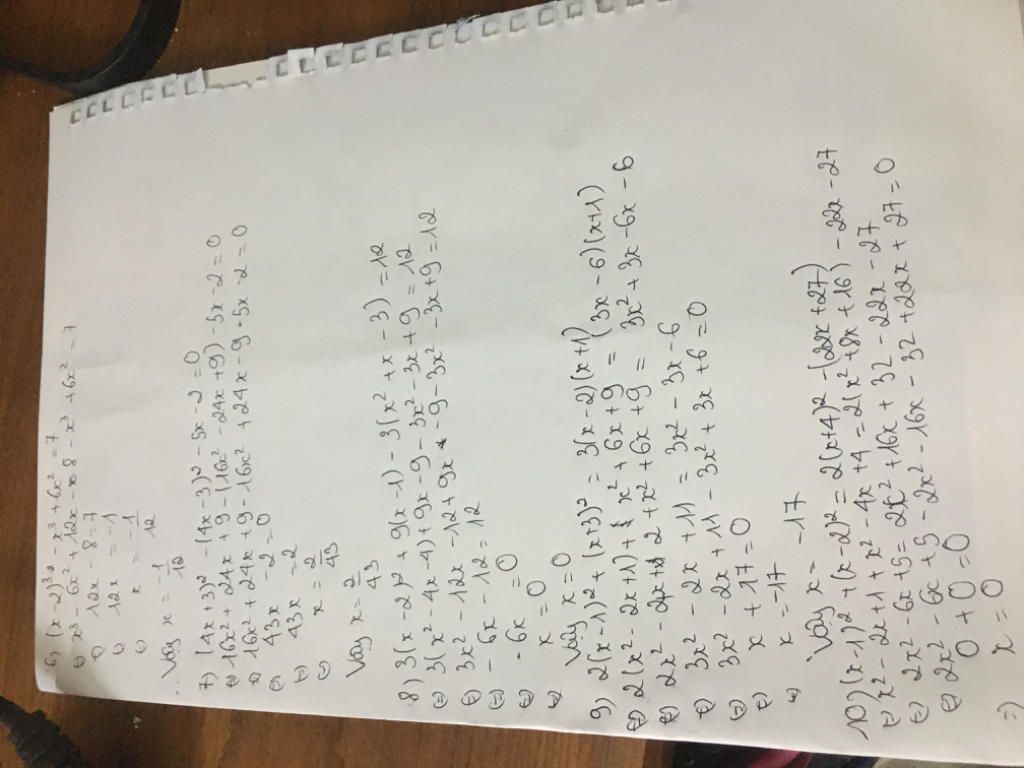 6) (x-2)³ - x³ + 6x² = 7
⇔ x³ - 6x² + 12x - 8 - x³ + 6x² = 7
⇔ 12x - 8 = 7
⇔ 12x = -1
⇔ x = -1/12
Vậy x = -1/12
7) (4x+3)² - (4x-3)² - 5x - 2 = 0
⇔ 16x² + 24x + 9 - (16x² - 24x + 9) - 5x - 2 = 0
⇔ 16x² + 24x + 9 - 16x² + 24x - 9 - 5x - 2 = 0
⇔ 43x - 2 = 0
⇔ 43x = 2
⇔ x = 2/43
Vậy x = 2/43
8) 3(x-2)² + 9(x-1) - 3(x² + x - 3) = 12
⇔ 3(x² - 4x - 4) + 9x - 9 - 3x² - 3x + 9 = 12
⇔ 3x² - 12x - 12 + 9x - 9 - 3x² - 3x + 9 = 12
⇔ - 6x - 12 = 12
⇔ - 6x = 0
⇔ x = 0
Vậy x = 0
9) 2(x-1)² + (x+3)² = 3(x-2)(x+1)
⇔ 2(x² - 2x + 1) + x² + 6x + 9 = (3x - 6)(x+1)
⇔ 2x² - 4x + 2 + x² + 6x + 9 = 3x² + 3x - 6x - 6
⇔ 3x² - 2x + 11 = 3x² - 3x - 6
⇔ 3x² - 2x + 11 - 3x² + 3x + 6 = 0
⇔ x + 17 = 0
⇔ x = -17
Vậy x = -17
10) (x-1)² + (x-2)² = 2(x+4)² - (22x + 27)
⇔ x² - 2x + 1 + x² - 4x + 4 = 2(x² + 8x + 16) - 22x - 27
⇔ 2x² - 6x + 5 = 2x² + 16x + 32 - 22x - 27
⇔ 2x² - 6x + 5 - 2x² - 16x - 32 + 22x + 27 = 0
0 + 0 = 0
⇒ x = 0